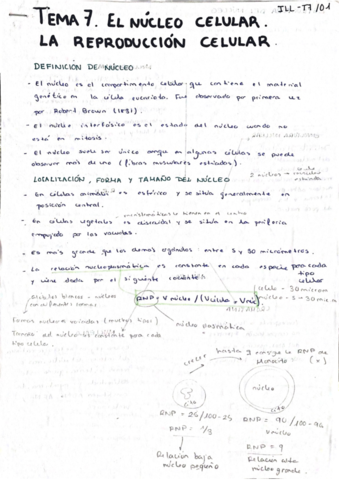 ILL-T7/01
TEMA 7. EL NÚCLEO CELULAR.
LA REPRODUCCIÓN CELULAR.
DEFINICIÓN DE NÚCLEO
- El núcleo es el compartimento celular que contiene el material
genético en la célula eucariota. Fue observado por primera vez
por Robert Brown (1831).
- El núcleo interfásico es el estado del núcleo cuando no
está en mitosis.
- El núcleo suele ser único aunque en algunas células se puede
observar más de uno (fibras musculares estriadas).
LOCALIZACIÓN, FORMA Y TAMAÑO DEL NÚCLEO
- En células animales es esférico y se sitúa generalmente en
posición central.
- En células vegetales es discoidal y se sitúa en la periferia
empujado por las vacuolas.
- Es más grande que los demás orgánulos entre 5 y 30 micrómetros.
- La relación nucleoplasmática es constante en cada especie para cada
tipo
celular
y viene dada por el siguiente cociente:
RNP = V núcleo / (V célula - V núc)
núcleo plasmática
Forma núcleo
Tamaño del núcleo es constante para cada
tipo celular.
hasta
núcleo
RNP = 25/100-25
RNP = 1/3
Relación baja
núcleo pequeño
RNP = 90/100-90
RNP = 9
Relación alta
núcleo grande.